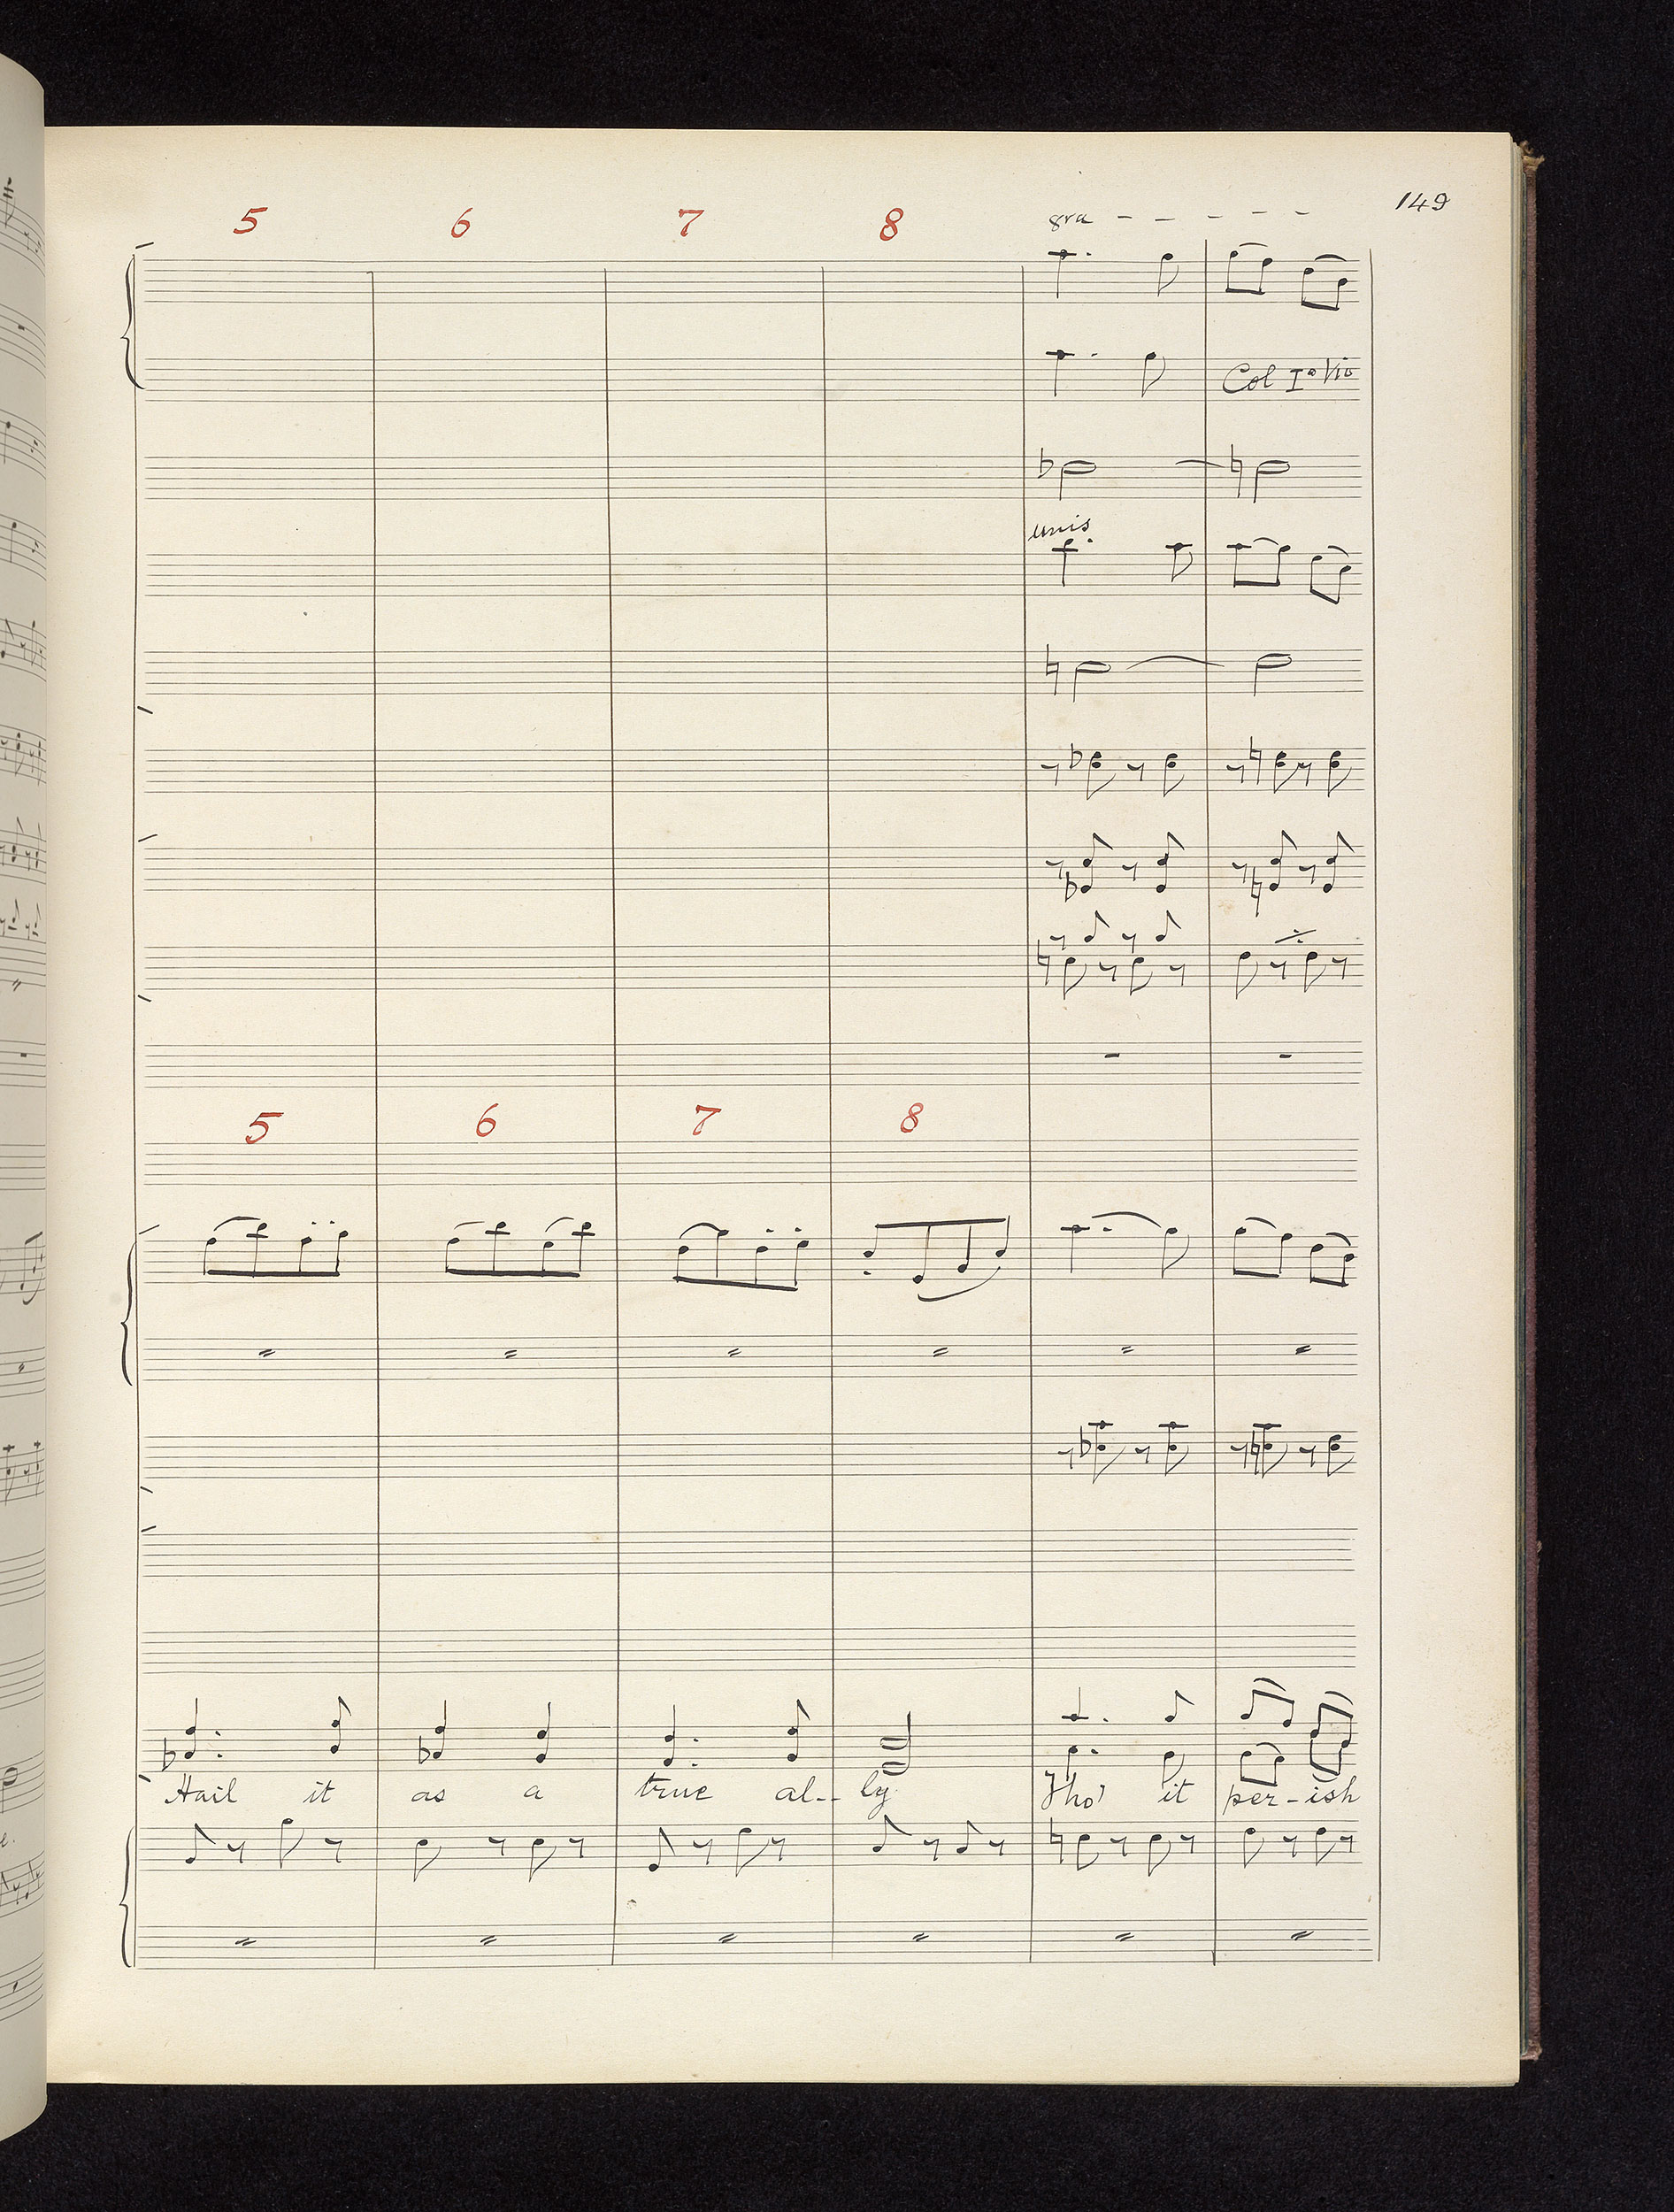 149
5 6 7 8 8va
Col Iº Vio
unis
5 6 7 8
Hail it as a true al-- ly. Tho' it per-ish